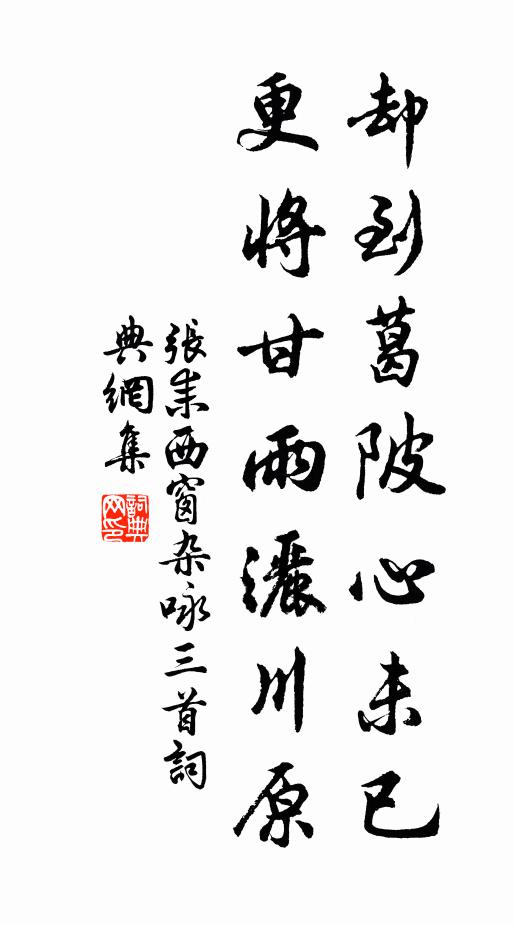 却到葛陂心未已
更將甘雨灑川原
張耒西窗杂咏三首詞
典網集
詞典網印